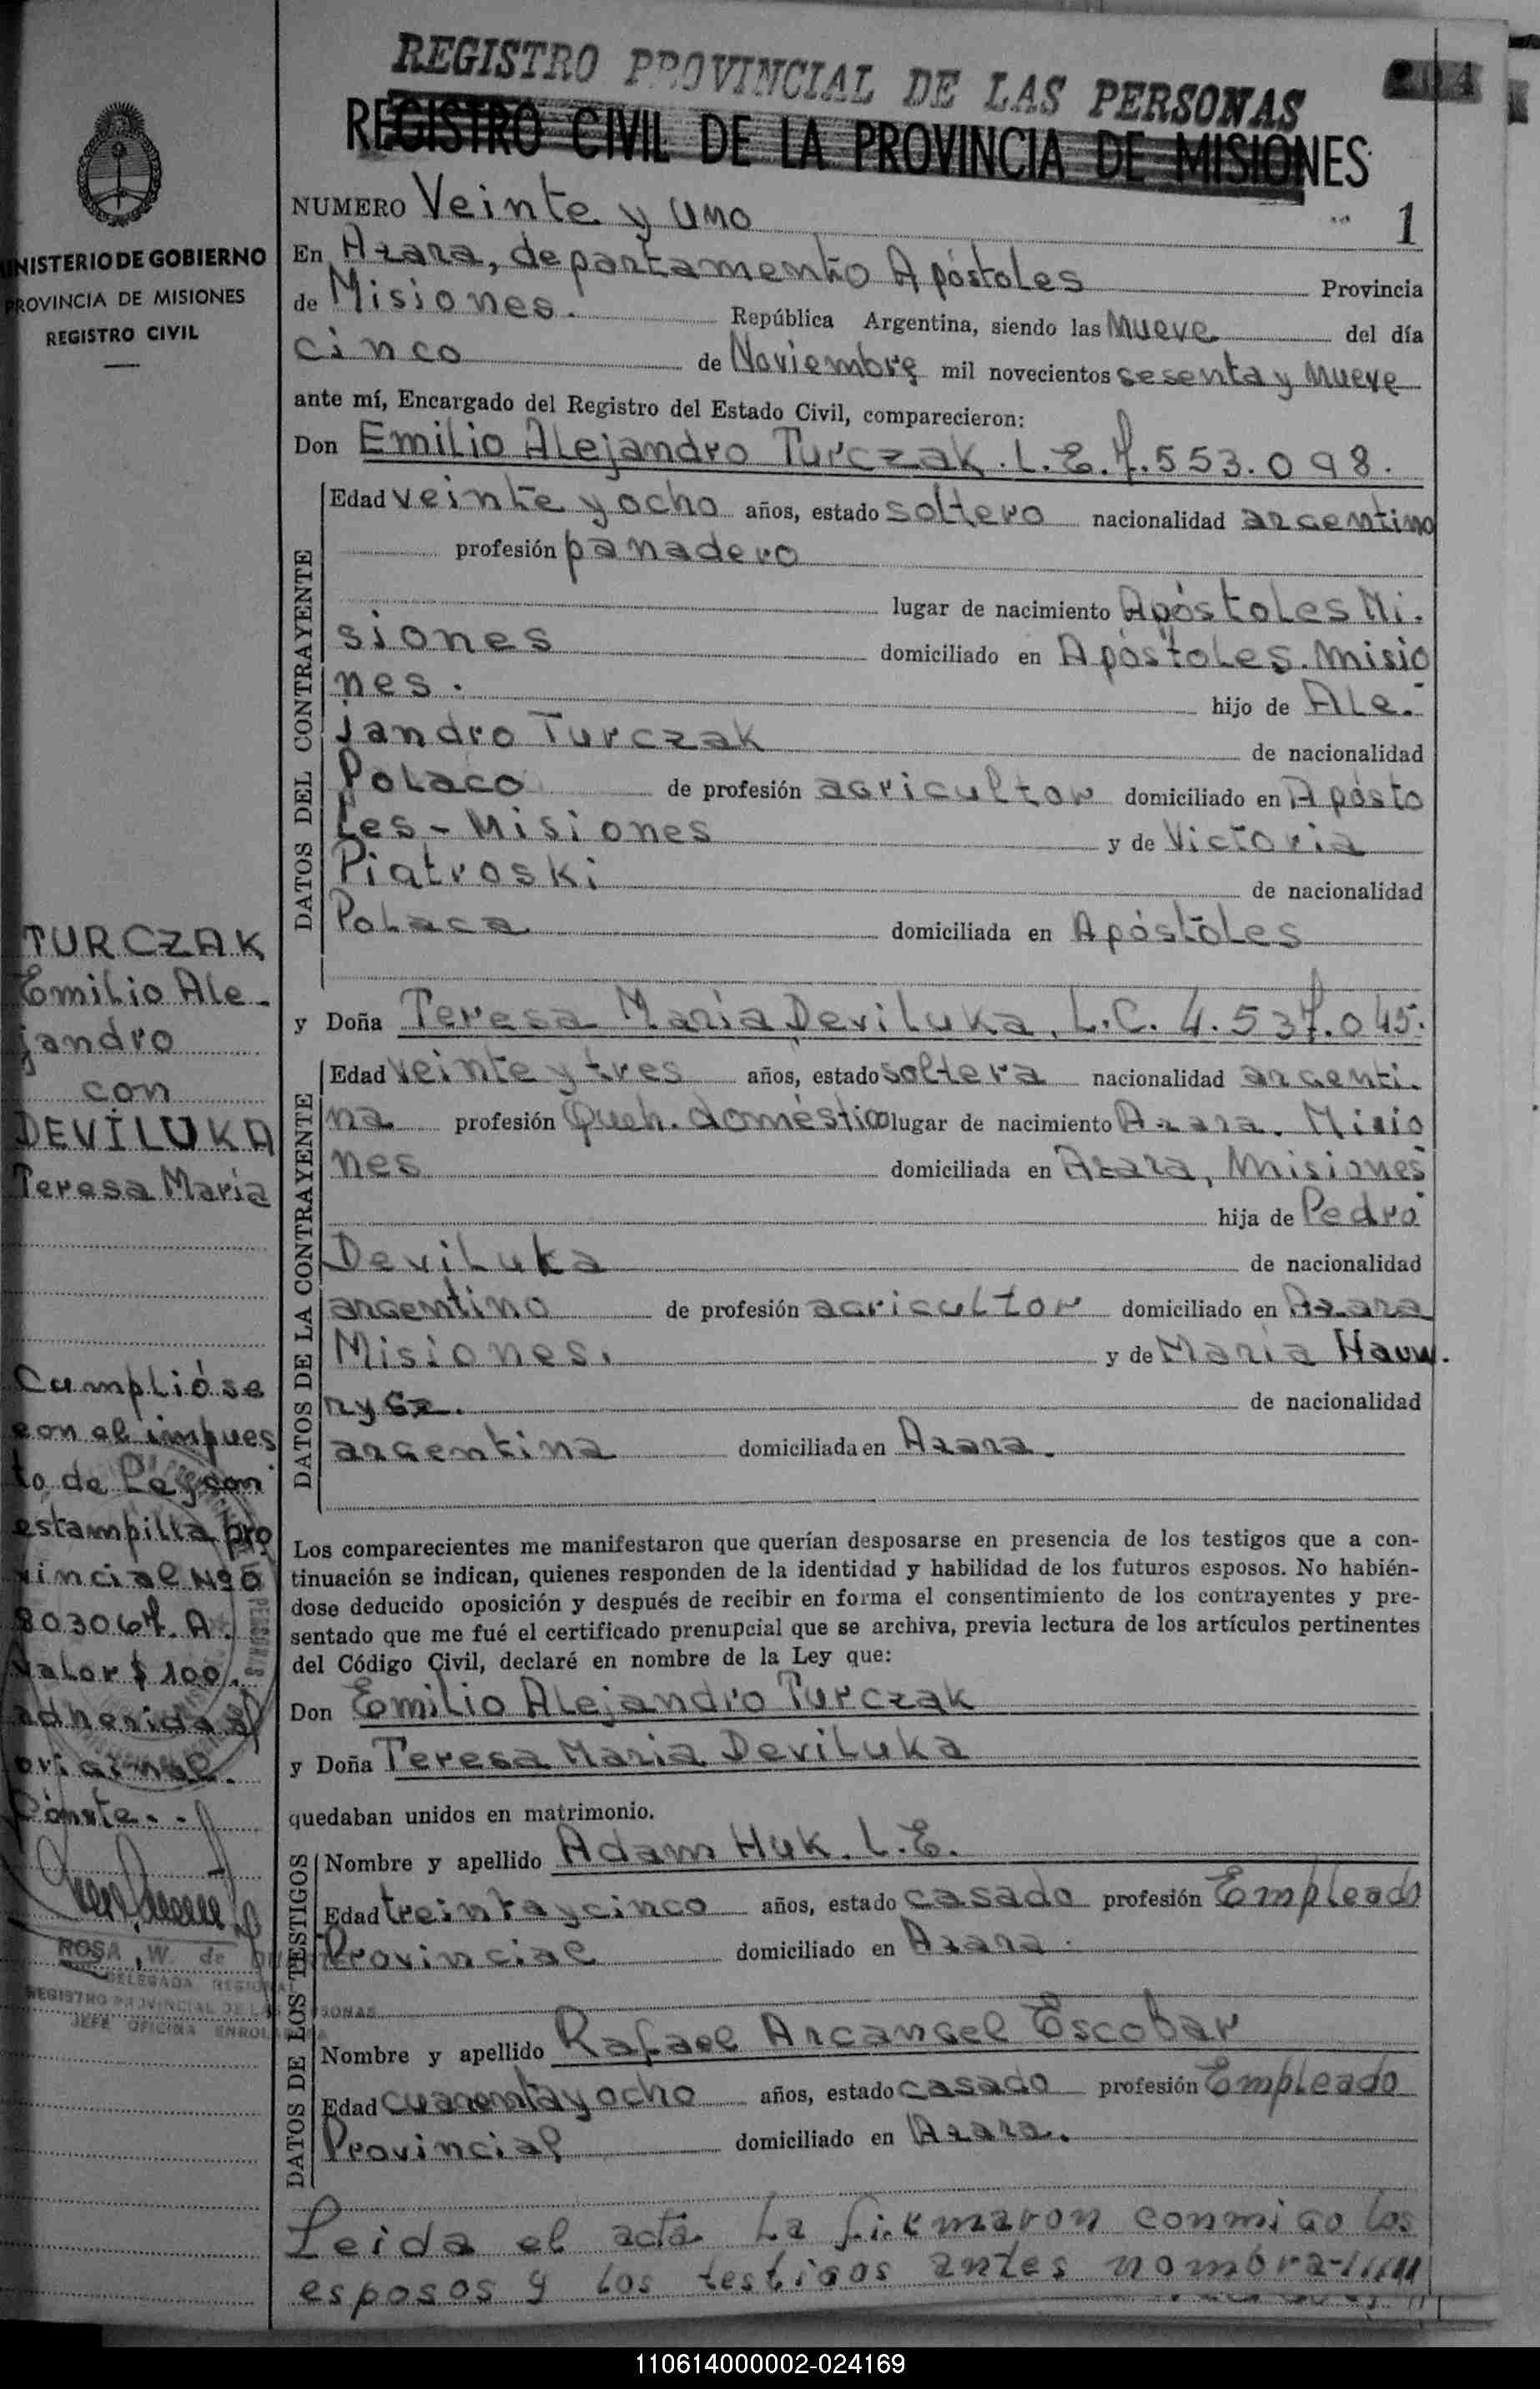 REGISTRO PROVINCIAL DE LAS PERSONAS
REGISTRO CIVIL DE LA PROVINCIA DE MISIONES
NUMERO Veinte y uno
1
En Azara, departamento Apóstoles Provincia
de Misiones. República Argentina, siendo las nueve del día
cinco de Noviembre mil novecientos sesenta y nueve
ante mí, Encargado del Registro del Estado Civil, comparecieron:
Don Emilio Alejandro Turczak. L.E. 7.553.098.
DATOS DEL CONTRAYENTE
Edad veinte y ocho años, estado soltero nacionalidad argentino
profesión panadero
lugar de nacimiento Apóstoles Mi.
siones domiciliado en Apóstoles. Misio
nes. hijo de Ale.
jandro Turczak de nacionalidad
Polaco de profesión agricultor domiciliado en Apósto
les - Misiones y de Victoria
Piatroski de nacionalidad
Polaca domiciliada en Apóstoles
y Doña Teresa María Deviluka, L.C. 4.537.045.
DATOS DE LA CONTRAYENTE
Edad veinte y tres años, estado soltera nacionalidad argenti.
na profesión Queh. doméstico lugar de nacimiento Azara. Misio
nes domiciliada en Azara, Misiones
hija de Pedro
Deviluka de nacionalidad
argentino de profesión agricultor domiciliado en Azara
Misiones. y de María
de nacionalidad
argentina domiciliada en Azara.
Los comparecientes me manifestaron que querían desposarse en presencia de los testigos que a con-
tinuación se indican, quienes responden de la identidad y habilidad de los futuros esposos. No habién-
dose deducido oposición y después de recibir en forma el consentimiento de los contrayentes y pre-
sentado que me fué el certificado prenupcial que se archiva, previa lectura de los artículos pertinentes
del Código Civil, declaré en nombre de la Ley que:
Don Emilio Alejandro Turczak
y Doña Teresa Maria Deviluka
quedaban unidos en matrimonio.
DATOS DE LOS TESTIGOS
Nombre y apellido Adam Huk. L.E.
Edad treinta y cinco años, estado casado profesión Empleado
Provincial domiciliado en Azara.
Nombre y apellido Rafael Arcangel Escobar
Edad cuarenta y ocho años, estado casado profesión Empleado
Provincial domiciliado en Azara.
Leida el acta la firmaron conmigo los
esposos y los testigos antes nombra
MINISTERIO DE GOBIERNO
PROVINCIA DE MISIONES
REGISTRO CIVIL
TURCZAK
Emilio Ale-
jandro
con
DEVILUKA
Teresa María
Cumplióse
con el impues
to de Ley con
estampilla pro
vincial Nº 0
803067. A.
Valor $ 100.
adherida al
original.
Conste.
ROSA W. de
DELEGADA REGIONAL
REGISTRO PROVINCIAL DE LAS PERSONAS
JEFE OFICINA ENROLADORA
110614000002-024169